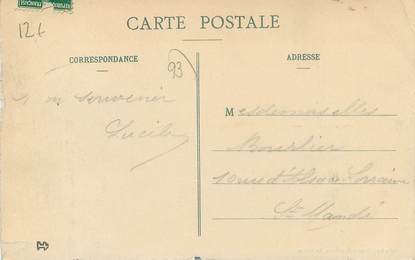 12€
CARTE POSTALE
CORRESPONDANCE
93
ADRESSE
souvenir
Lucile
Mesdemoiselles
Bourlier
rue d'Alsace Lorraine
St Mandé